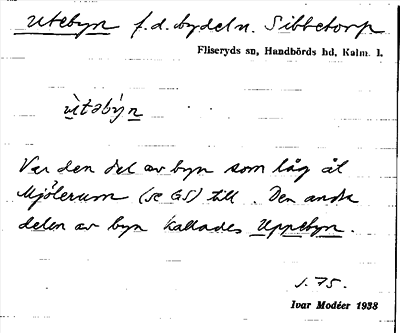 Utebyn f.d. bydel n. Sibbetorp
Fliseryds sn, Handbörds hd, Kalm. l.
ùtəbẏ́n
Var den del av byn som låg åt
Mjölerum (se GS) till. Den andra
delen av byn kallades Uppebyn.
s. 75.
Ivar Modéer 1938